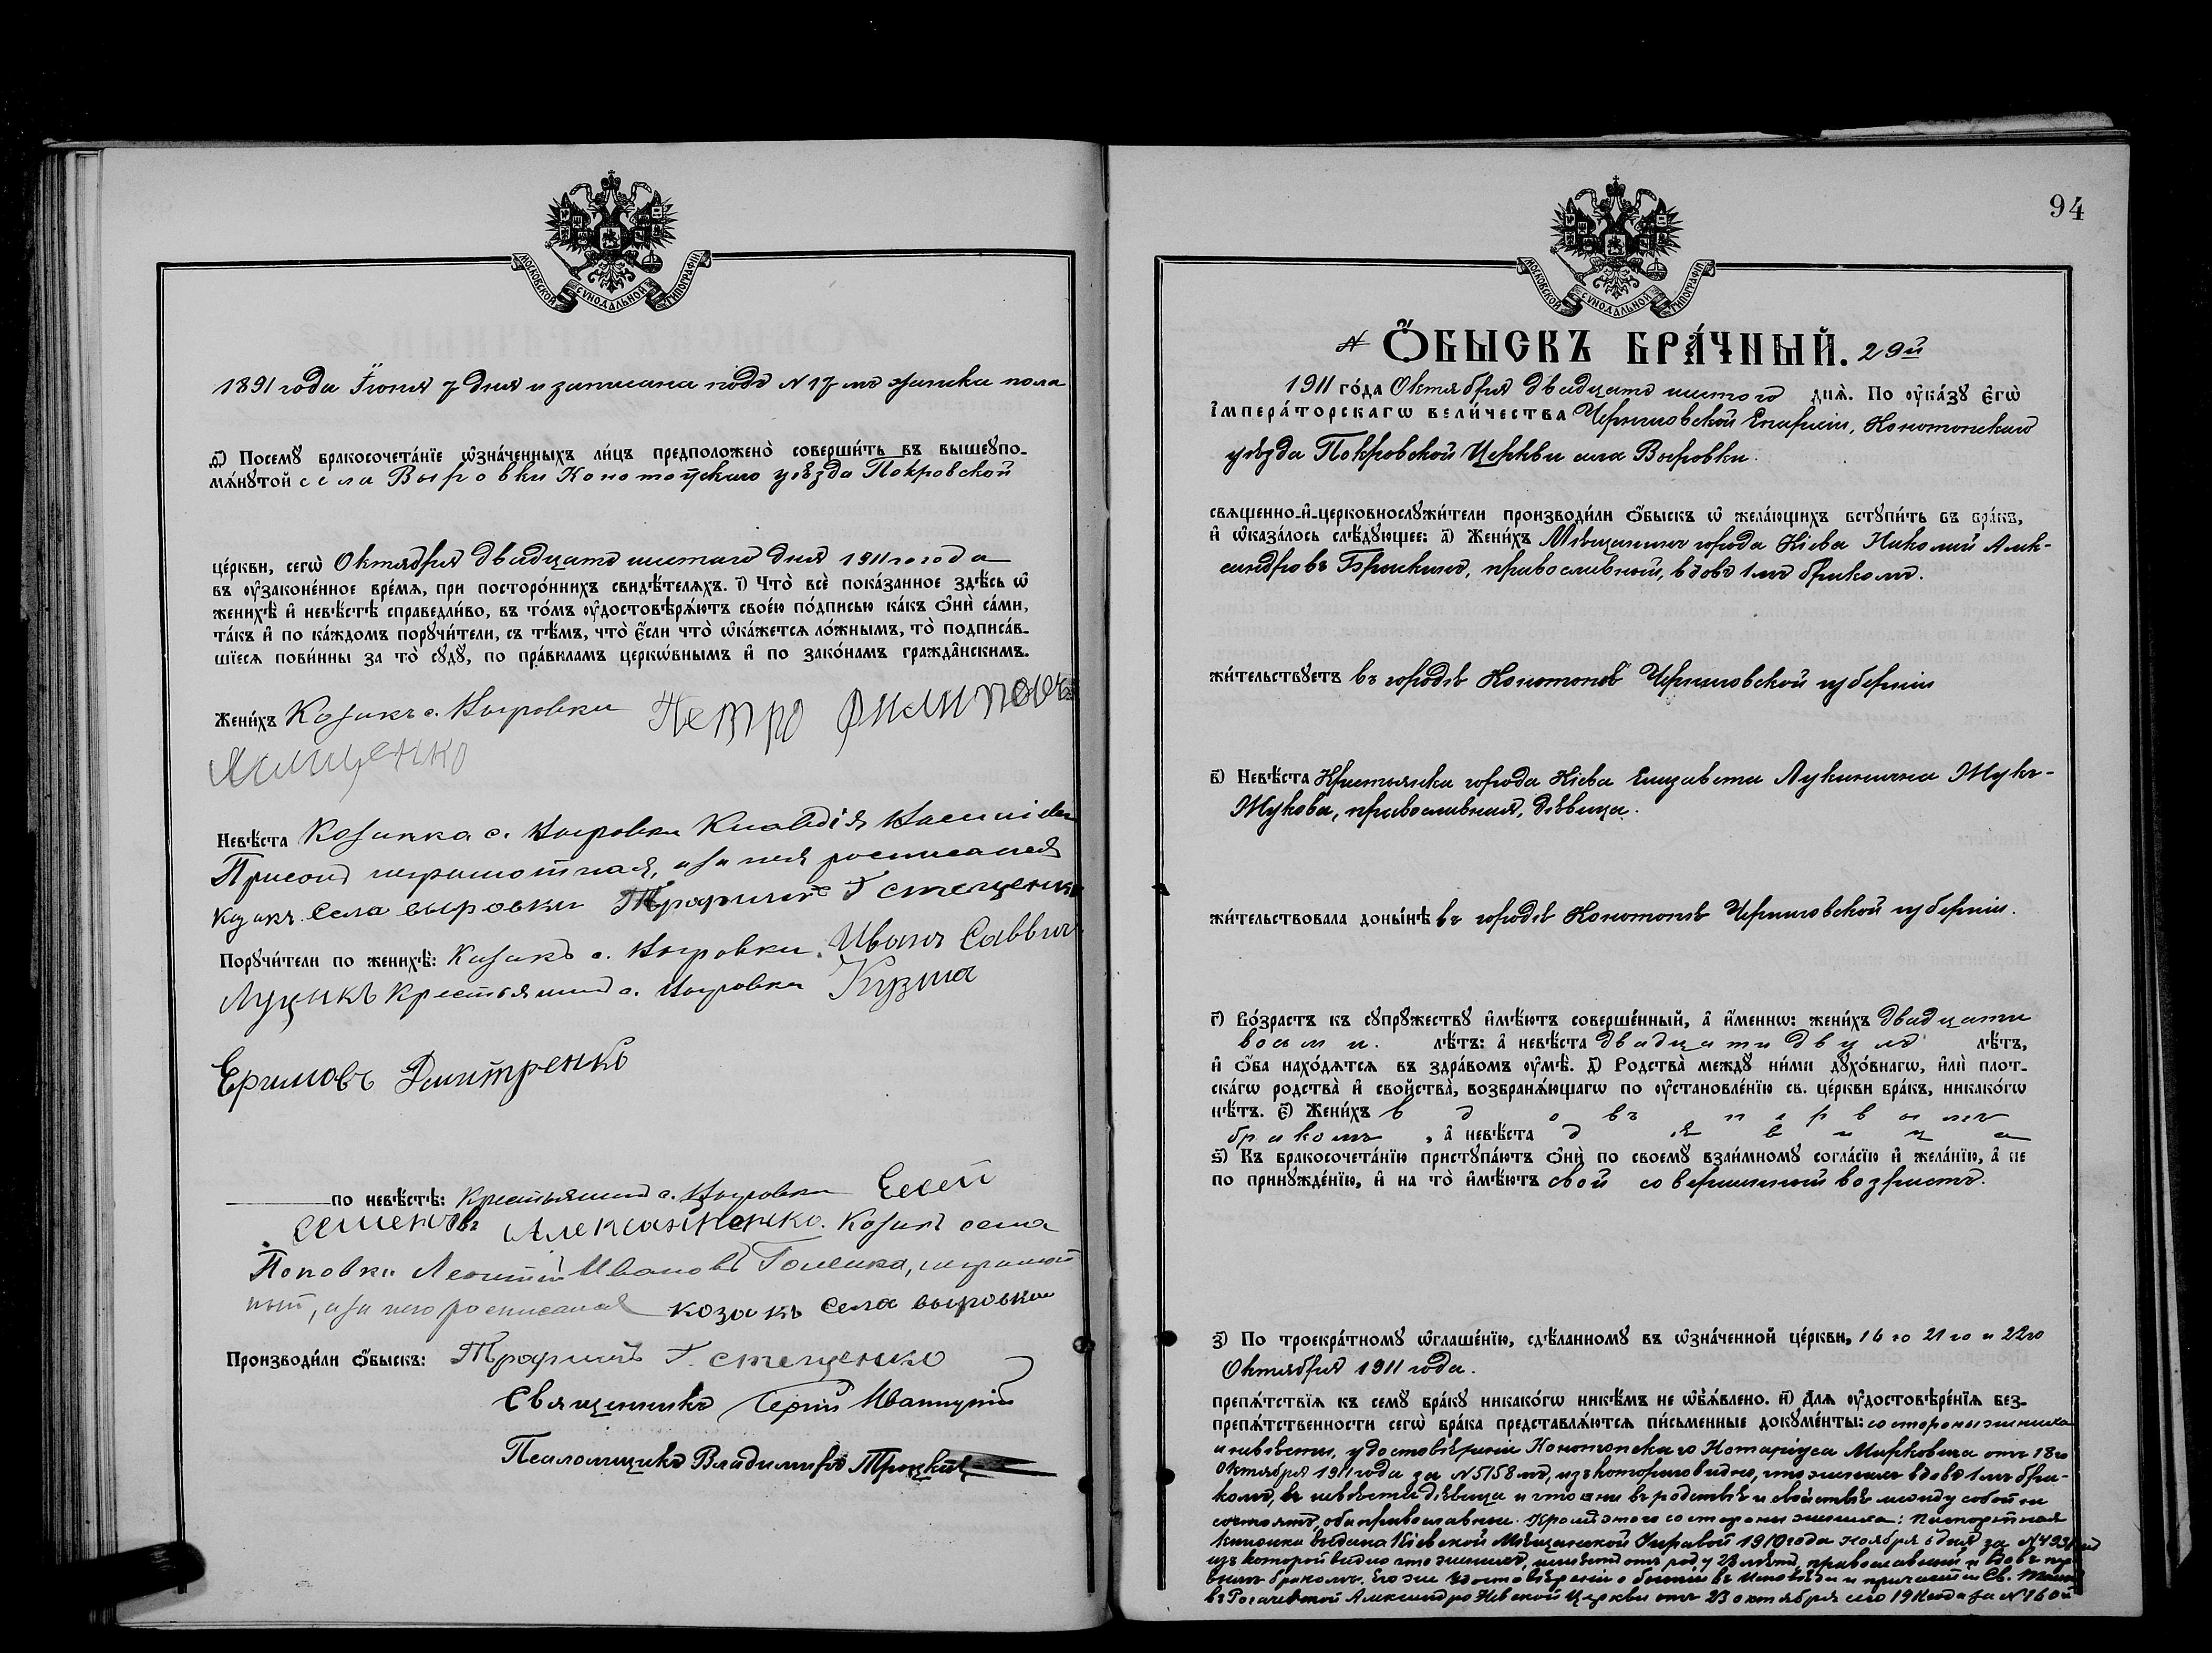 МОСКОВСКОЙ СѴНОДАЛЬНОЙ ТИПОГРАФІИ
1891 года Іюня 7 дня и записана подъ N 17 мъ
и҃) Посемꙋ̀ бракосочетанїе ѡзначенныхъ лицъ предположено совершить въ вышеꙋпо-
мянꙋтой села Выровки Конотопскаго уѣзда Покровской
церкви, сегѡ Октября двадцать шестаго дня 1911 го года
въ ꙋзаконенное время, при постороннихъ свидѣтеляхъ. і҃) Что все показанное здѣсь ѡ
женихѣ и невѣстѣ справедливо, въ томъ ꙋдостовѣряютъ своею подписью какъ ѻни сами,
такъ и по каждомъ порꙋчители, съ тѣмъ, что если что ѡкажется ложнымъ, то подписав-
шїеся повинны за то сꙋдꙋ, по правиламъ церкѡвнымъ и по законамъ гражданскимъ.
Женихъ Козакъ с. Выровки Петро Филиповъ
Ялищенко
Невѣста Козачка с. Выровки Клавдія
неграмотная, а за нея росписался
козакъ села выровки Трофимъ Г Стеценко
Порꙋчители по женихѣ: Козакъ с. Выровки Иванъ Саввичъ
Луцикъ Крестьянинъ с. Выровки Кузма
Ефимовъ Дмитренко
по невѣстѣ: Крестьянинъ с. Выровки Евсей
Семеновъ Александренко. Козакъ села
Поповки Леонтій Ивановъ Голенка, неграмот
ный, а за него росписался козакъ села выровки
Производили ѻбыскъ: Трофимъ Г. Стеценко
Священникъ Сергій Иваницкій
Псаломщикъ Владиміръ Троцкій
94
МОСКОВСКОЙ СѴНОДАЛЬНОЙ ТИПОГРАФІИ
N ѺБЫСКЪ БРАЧНЫЙ. 29й
1911 года Октября двадцать шестого дня. По ꙋказꙋ Егѡ
Императорскагѡ величества Черниговской Епархіи, Конотопскаго
уѣзда Покровской Церкви села Выровки.
священно-и-церковнослꙋжители производили ѻбыскъ ѡ желающихъ встꙋпить въ бракъ,
и ѡказалось слѣдꙋющее: а҃) Женихъ Мѣщанинъ города Кіева Николай Алек-
сандровъ Брискинъ, православный, вдовъ 1 мъ бракомъ.
жительствꙋетъ въ городѣ Конотопѣ Черниговской губерніи
в҃) Невѣста Крестьянка города Кіева Елизавета Лукинична Жукъ-
Жукова, православная, дѣвица.
жительствовала донынѣ въ городѣ Конотопѣ Черниговской губерніи.
г҃) Возрастъ къ сꙋпрꙋжествꙋ имѣютъ совершенный, а именнѡ: женихъ двадцати
восьми. лѣтъ: а невѣста двадцати двухъ лѣтъ,
и ѻба находятся въ здравомъ ꙋмѣ. д҃) Родства междꙋ ними дꙋховнагѡ, или плот-
скагѡ родства и свойства, возбраняющагѡ по ꙋстановленїю св. церкви бракъ, никакогѡ
нѣтъ. е҃) Женихъ вдовъ первымъ
бракомъ, а невѣста дѣвица
ѕ҃) Къ бракосочетанїю пристꙋпаютъ ѻни по своемꙋ взаимномꙋ согласїю и желанїю, а не
по принꙋжденїю, и на то имѣютъ свой совершенный возрастъ.
з҃) По троекратномꙋ ѡглашенїю, сдѣланномꙋ въ ѡзначенной церкви, 16 го 21 го и 22 го
Октября 1911 года.
препятствїя къ семꙋ бракꙋ никакогѡ никѣмъ не ѡб̾явлено. и҃) Для ꙋдостовѣренїя без-
препятственности сегѡ брака представляются письменные докꙋменты: со стороны жениха
и невѣсты, удостовѣреніе Конотопскаго Нотаріуса Марковича отъ 18 го
Октября 1911 года за N 5158 мъ, изъ котораго видно, что женихъ вдовъ 1 мъ бра-
комъ, а невѣста дѣвица и что они въ родствѣ и свойствѣ между собой не
состоятъ, оба православные. Кромѣ этого со стороны жениха: Паспортная
книжка выдана Кіевской Мѣщанской Управой 1910 года Ноября 6 дня за
изъ которой видно что женихъ, имѣетъ отъ роду 28 лѣтъ, православный и вдовъ пер
вымъ бракомъ. Его же удостовѣреніе о бытіи въ Исповѣди и причастіи Св. Таинъ
въ Александро Невской Церкви отъ 23 октября сего 1911 года за N 160 й